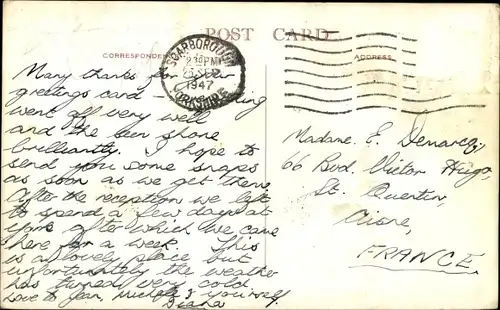 POST CARD
CORRESPONDENCE
ADDRESS
SCARBOROUGH
1947
YORKSHIRE
Many thanks for your
greetings card -
went off very well
and the sun shone
brilliantly. I hope to
send you some snaps
as soon as we get there.
After the reception we left
to spend a few days at
York after which we came
here for a week. This
is a lovely place but
unfortunately the weather
has turned very cold.
Love to Jean, Michele & yourself.
Diana
Madame. E.
66 Bvd. Victor Hugo
St. Quentin,
Aisne,
FRANCE.